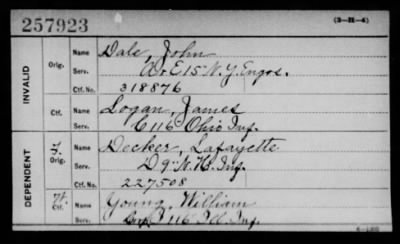 257923 (3-21-4)
INVALID
Orig. Name Dale, John
Serv. A & E 15" N.Y. Engrs.
Ctf. No. 318876
Ctf. Name Logan, James
Serv. C 116" Ohio Inf.
DEPENDENT
Orig. Name Decker, Lafayette
Serv. D 9" N.H. Inf.
Ctf. No. 227508
Ctf. Name Young, William
Serv. 116 Ill. Inf.